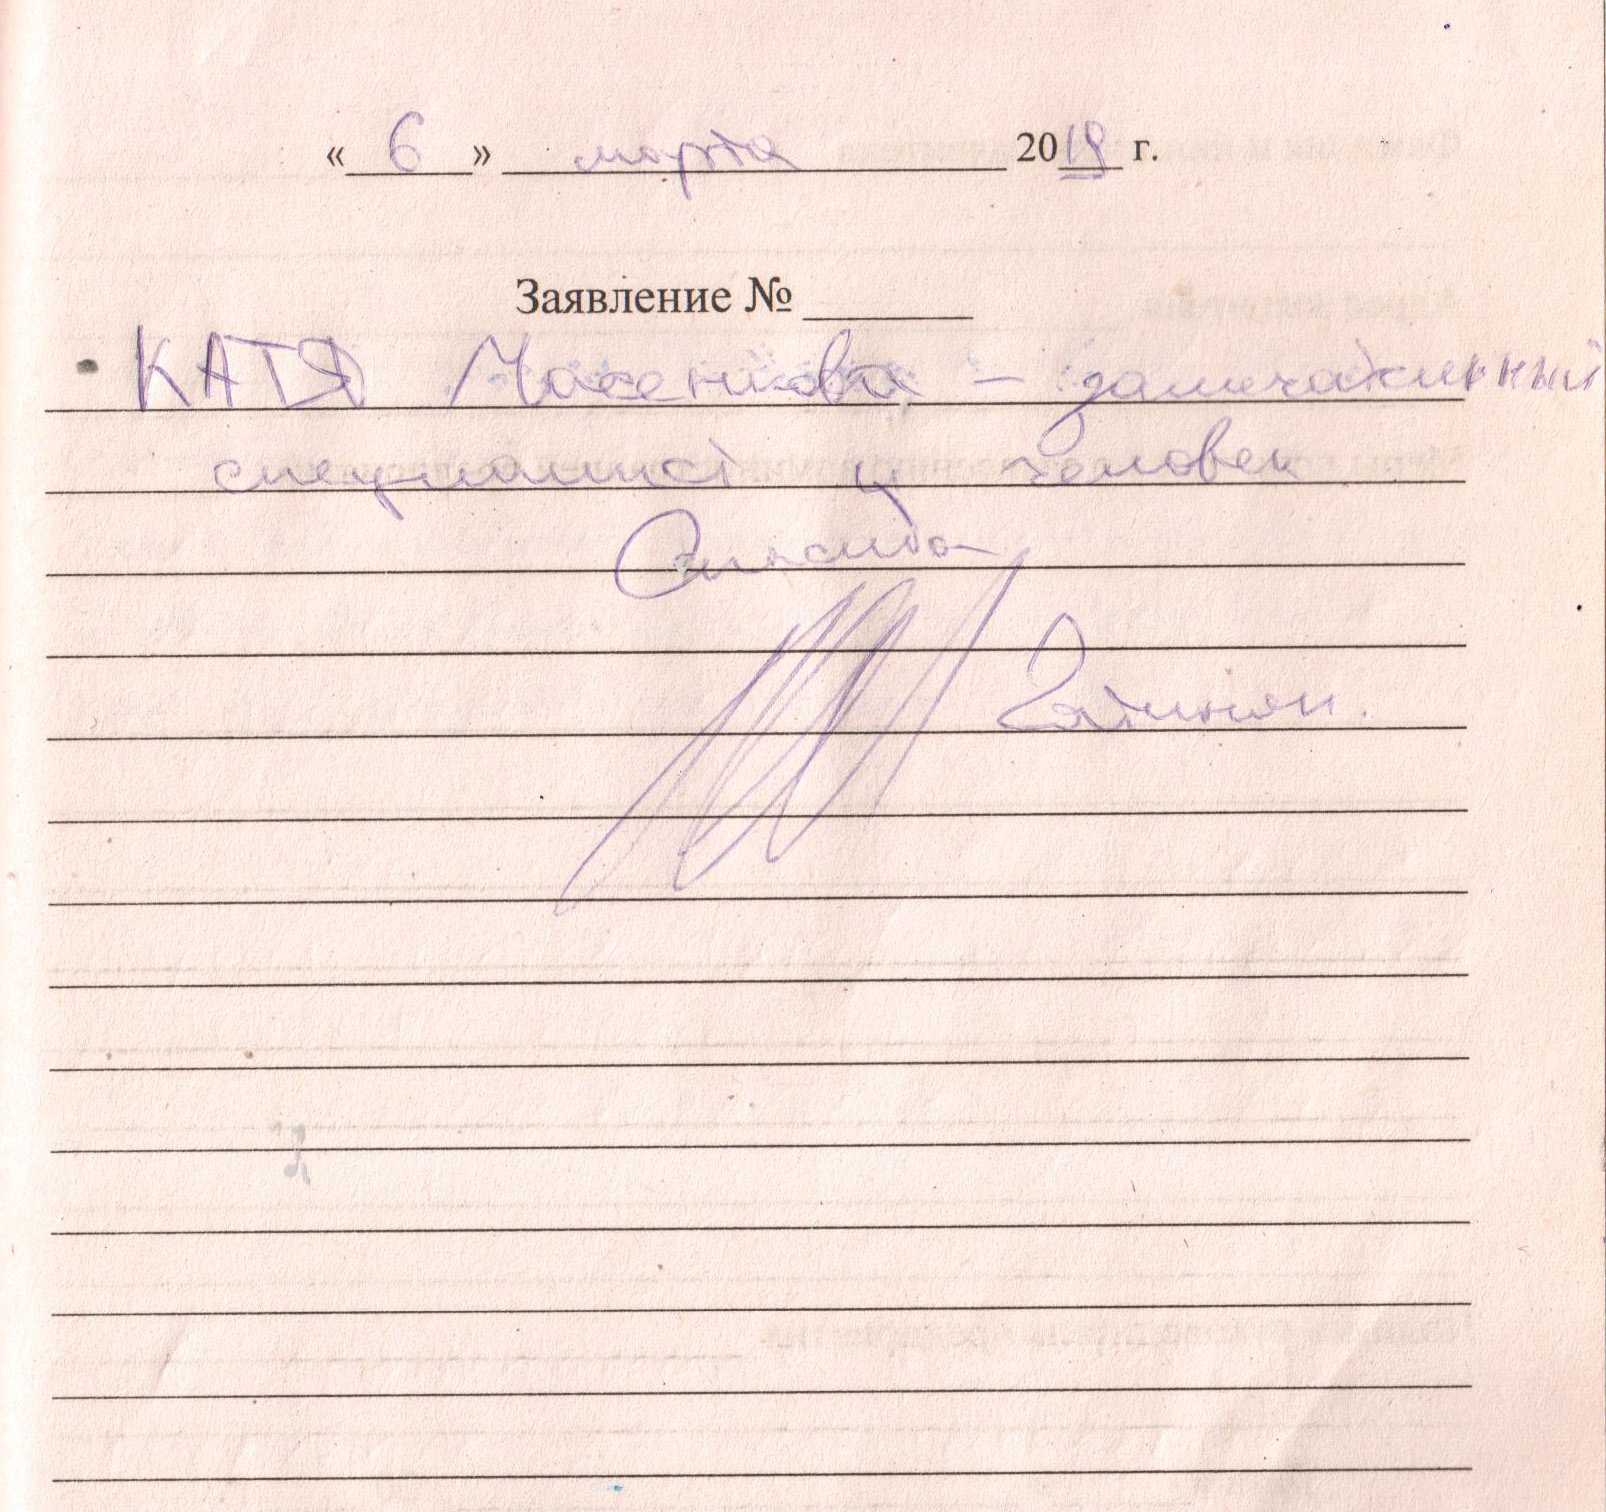 « 6 » марта 2019 г.
Заявление № ______
КАТЯ Масенкова - замечательный
специалист и человек
Спасибо